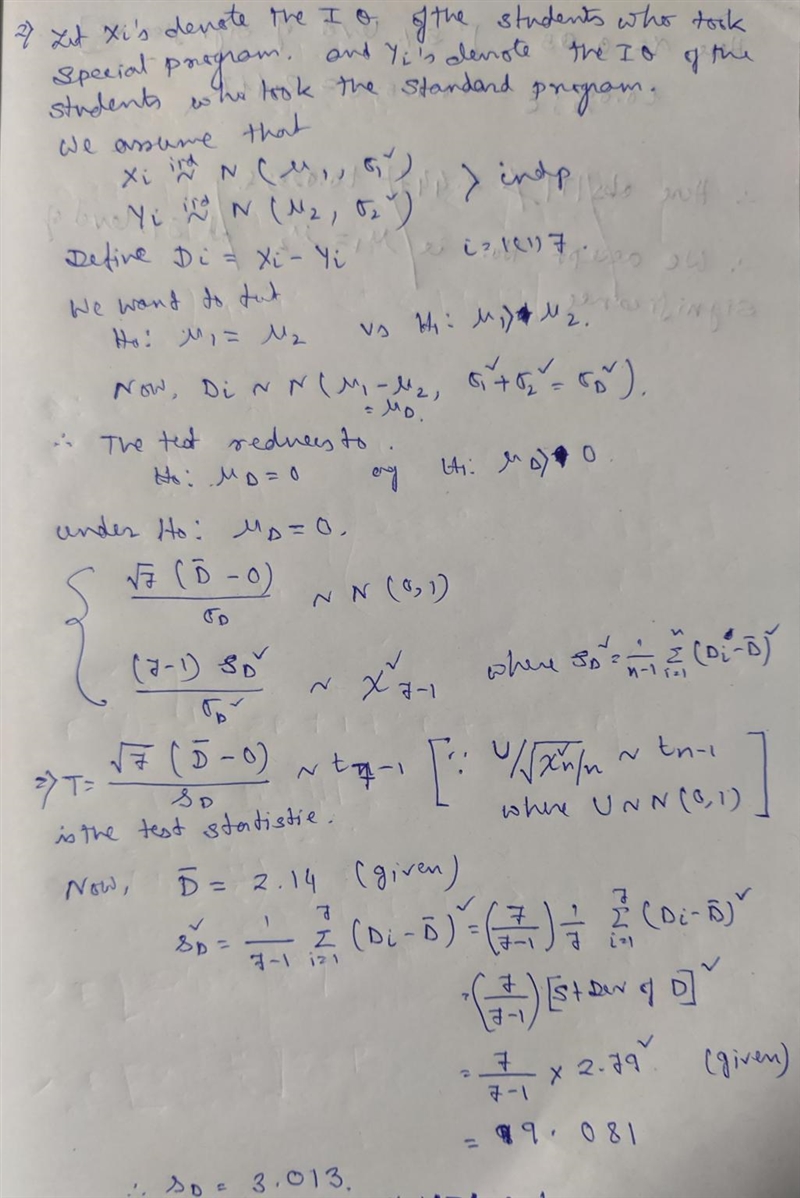 2) Let Xi's denote the I Q. of the students who took
special program. and Yi's denote the I Q of the
students who took the standard program.
We assume that
Xi iid ~ N (μ1, σ1²)
Yi iid ~ N (μ2, σ2²) > indp
Define Di = Xi - Yi i = 1(1)7.
We want to test
H0: μ1 = μ2 vs H1: μ1 > μ2.
Now, Di ~ N (μ1 - μ2, σ1² + σ2² = σD²).
= μD.
∴ The test reduces to.
H0: μD = 0 ag H1: μD > 0.
under H0: μD = 0.
√7 (D̄ - 0) / σD ~ N (0,1)
(7-1) SD² / σD² ~ χ²7-1 where SD² = 1/(n-1) Σ i=1 n (Di - D̄)²
⇒ T = √7 (D̄ - 0) / SD ~ t7-1 [∵ U/√χ²n/n ~ tn-1
where U ~ N (0,1)]
is the test statistic.
Now, D̄ = 2.14 (given)
SD² = 1/(7-1) Σ i=1 7 (Di - D̄)² = (7/(7-1)) 1/7 Σ i=1 7 (Di - D̄)²
= (7/(7-1)) [St Dev of D]²
= 7/(7-1) × 2.79² (given)
= 9.081
∴ SD = 3.013.